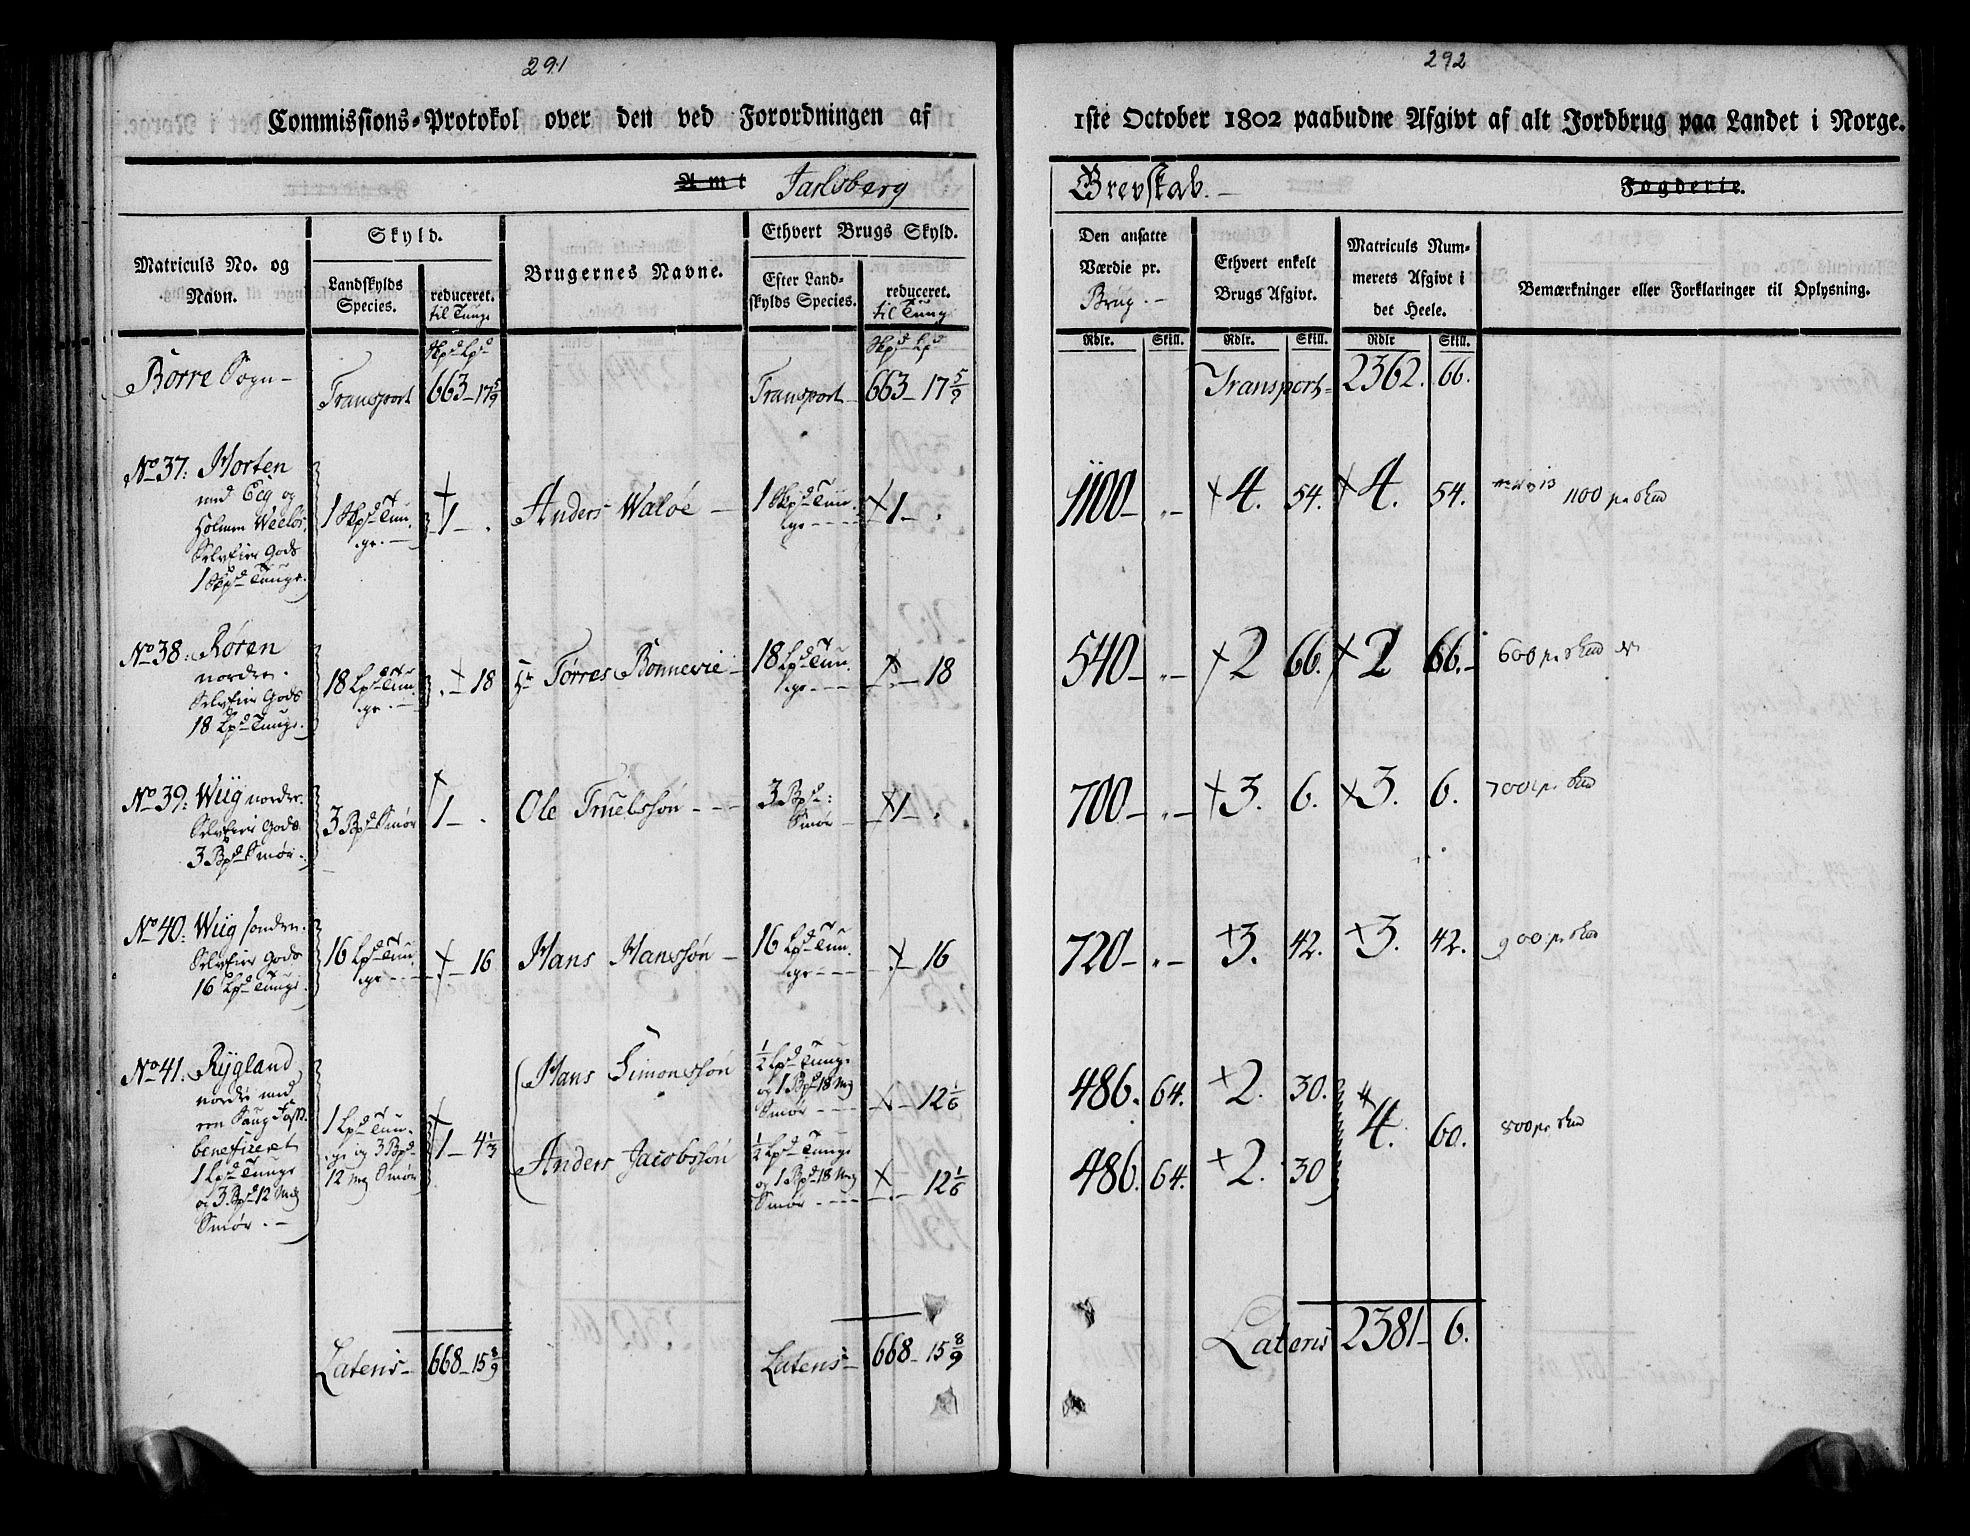 291
Commissions-Protokol over den ved Forordningen af
Amt Jarlsberg
Matriculs No. og Navn.
Skyld.
Landskylds Species.
reduceret. til Tunge
Brugernes Navne.
Ethvert Brugs Skyld.
Efter Landskylds Species.
reduceret. til Tung
Skpd Lpd
Skpd Lpd
Borre Sogn - Transport 663 - 17 5/9 Transport 663 - 17 5/9
No 37: Horten
med Eeg og
Holmen
Selveier Gods
1 Skpd Tunge.
1 Skpd Tun,
ge. -
1 - .
Anders Waløe -
1 Skpd Tun,
ge - - -
1 - .
No 38: Røren
nordre.
Selveier Gods
18 Lpd Tunge.
18 Lpd Tun,
ge. -
. - 18
Hr Tørres Bonnevie -
18 Lpd Tun,
ge - - -
. - 18
No 39: Wiig nordre.
Selveier Gods.
3 Bpd Smør.
3 Bpd Smør
1 - .
Ole Truelssøn - - -
3 Bpd:
Smør -
1 - .
No 40: Wiig søndre.
Selveier Gods
16 Lpd Tunge.
16 Lpd Tun,
ge - - -
- 16
Hans Hanssøn -
16 Lpd Tun,
ge - - -
. - 16
No 41: Rygland
nordre med
en Saug
beneficeret
1 Lpd Tunge
og 3 Bpd 12 Mrg
Smør. -
1 Lpd Tun,
ge og 3 Bpd
12 Mrg Smør
1 - 4 1/3
Hans Simonssøn
1/2 Lpd Tunge
og 1 Bpd 18 Mrg
Smør - - -
. - 12 1/6
Anders Jacobssøn
1/2 Lpd Tunge
og 1 Bpd 18 Mrg
Smør - - -
. - 12 1/6
Lateris - 668 - 15 8/9 Lateris - 668 - 15 8/9
292
1ste October 1802 paabudne Afgivt af alt Jordbrug paa Landet i Norge.
Grevskab. - Fogderie.
Den ansatte Værdie pr. Brug. -
Ethvert enkelt Brugs Afgivt.
Matriculs Nummerets Afgivt i det Heele.
Bemærkninger eller Forklaringer til Oplysning.
Rdlr. Skill. Rdlr. Skill. Rdlr Skill.
Transport - 2362. 66.
1100 - . - 4. 54. 4. 54. 1100 pr Skd
540 - . - 2 66. 2 66. - 600 pr Skd
700 - . - 3. 6. 3. 6. 700 pr Skd
720 - . - 3. 42. 3. 42. 900 pr Skd
486. 64. 2. 30.
4. 60. 800 pr Skd
486. 64. 2. 30
Lateris 2381 - 6.